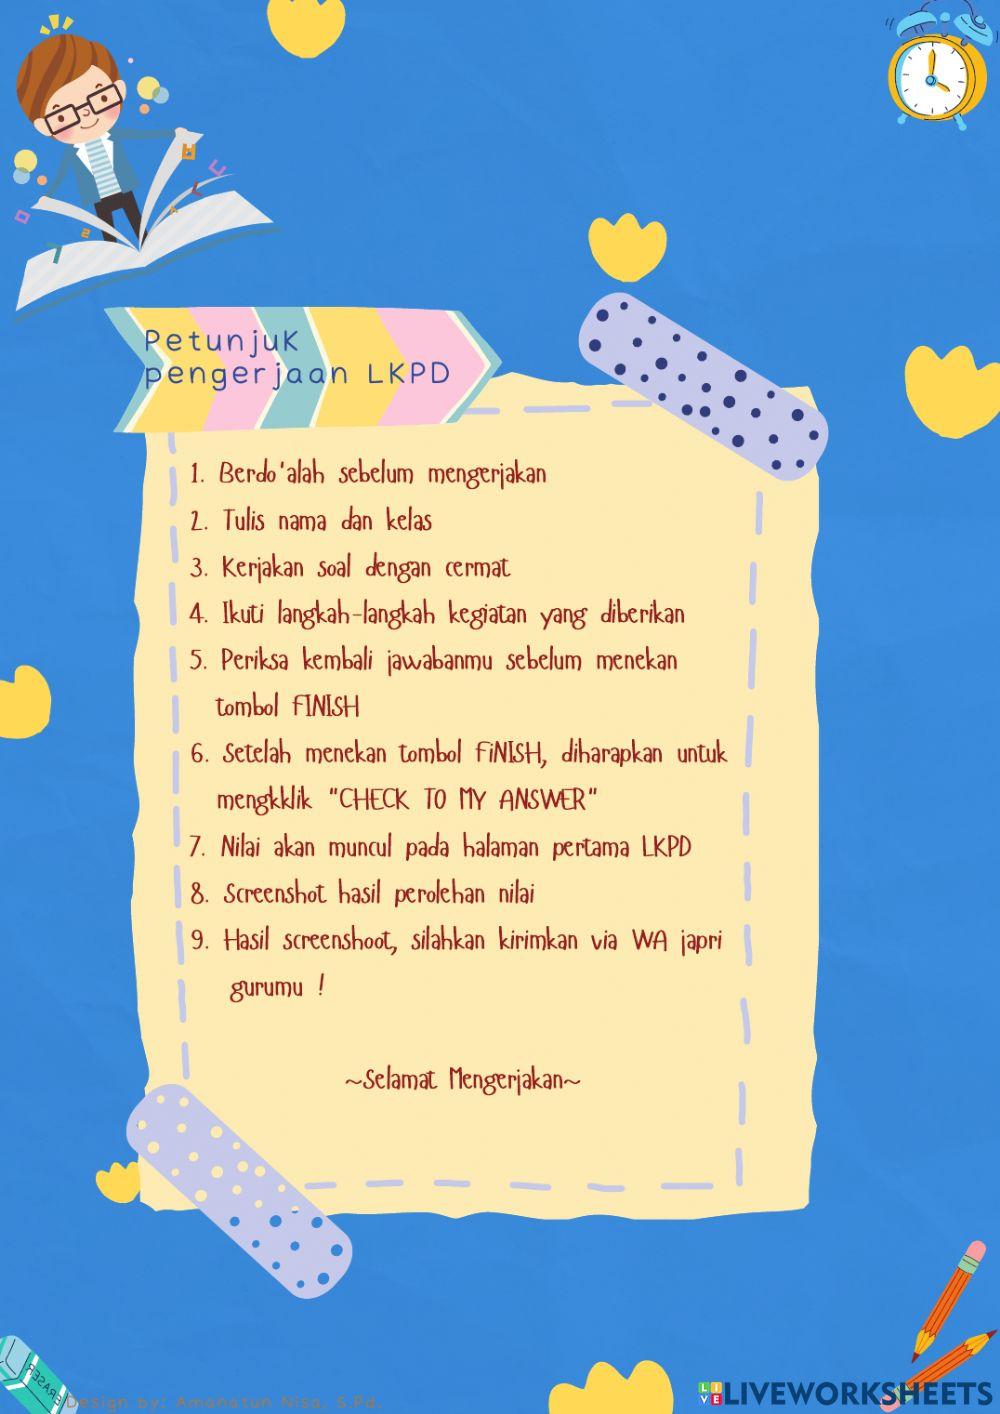 Petunjuk
pengerjaan LKPD
1. Berdo'alah sebelum mengerjakan
2. Tulis nama dan kelas
3. Kerjakan soal dengan cermat
4. Ikuti langkah-langkah kegiatan yang diberikan
5. Periksa kembali jawabanmu sebelum menekan
tombol FINISH
6. Setelah menekan tombol FiNISH, diharapkan untuk
mengkklik "CHECK TO MY ANSWER"
7. Nilai akan muncul pada halaman pertama LKPD
8. Screenshot hasil perolehan nilai
9. Hasil screenshoot, silahkan kirimkan via WA japri
gurumu !
~Selamat Mengerjakan~
ERASER
Design by: Amanatun Nisa, S.Pd.
LIVE LIVEWORKSHEETS